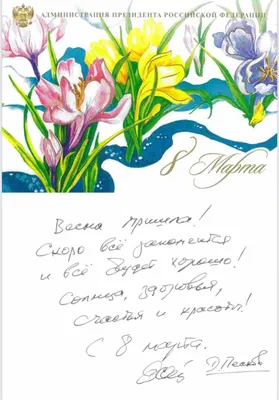 АДМИНИСТРАЦИЯ ПРЕЗИДЕНТА РОССИЙСКОЙ ФЕДЕРАЦИИ
8 Марта
Весна пришла!
Скоро всё
и всё будет хорошо!
Солнца, здоровья,
счастья и красоты!
С 8 марта.
Д Песков